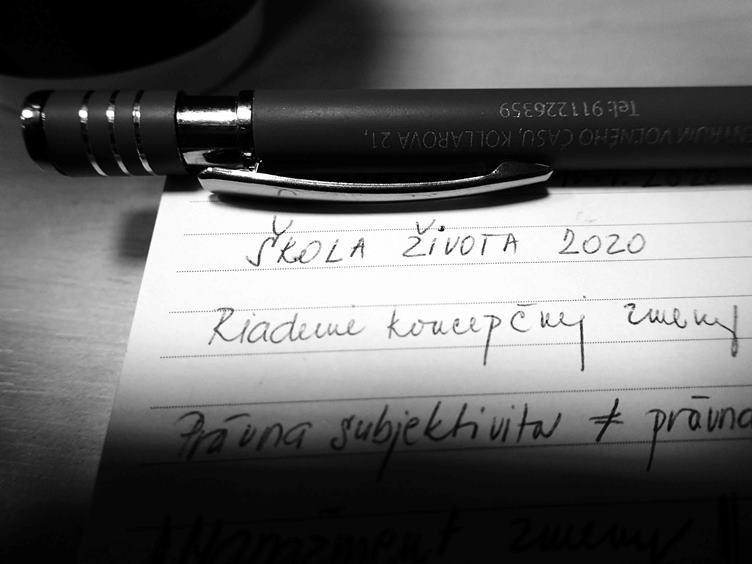 NTRUM VOĽNÉHO ČASU, KOLLÁROVA 21,
Tel: 911226359
ŠKOLA ŽIVOTA 2020
Riadenie koncepčnej zmeny
Právna subjektivita ≠ právna
Manažment zmeny